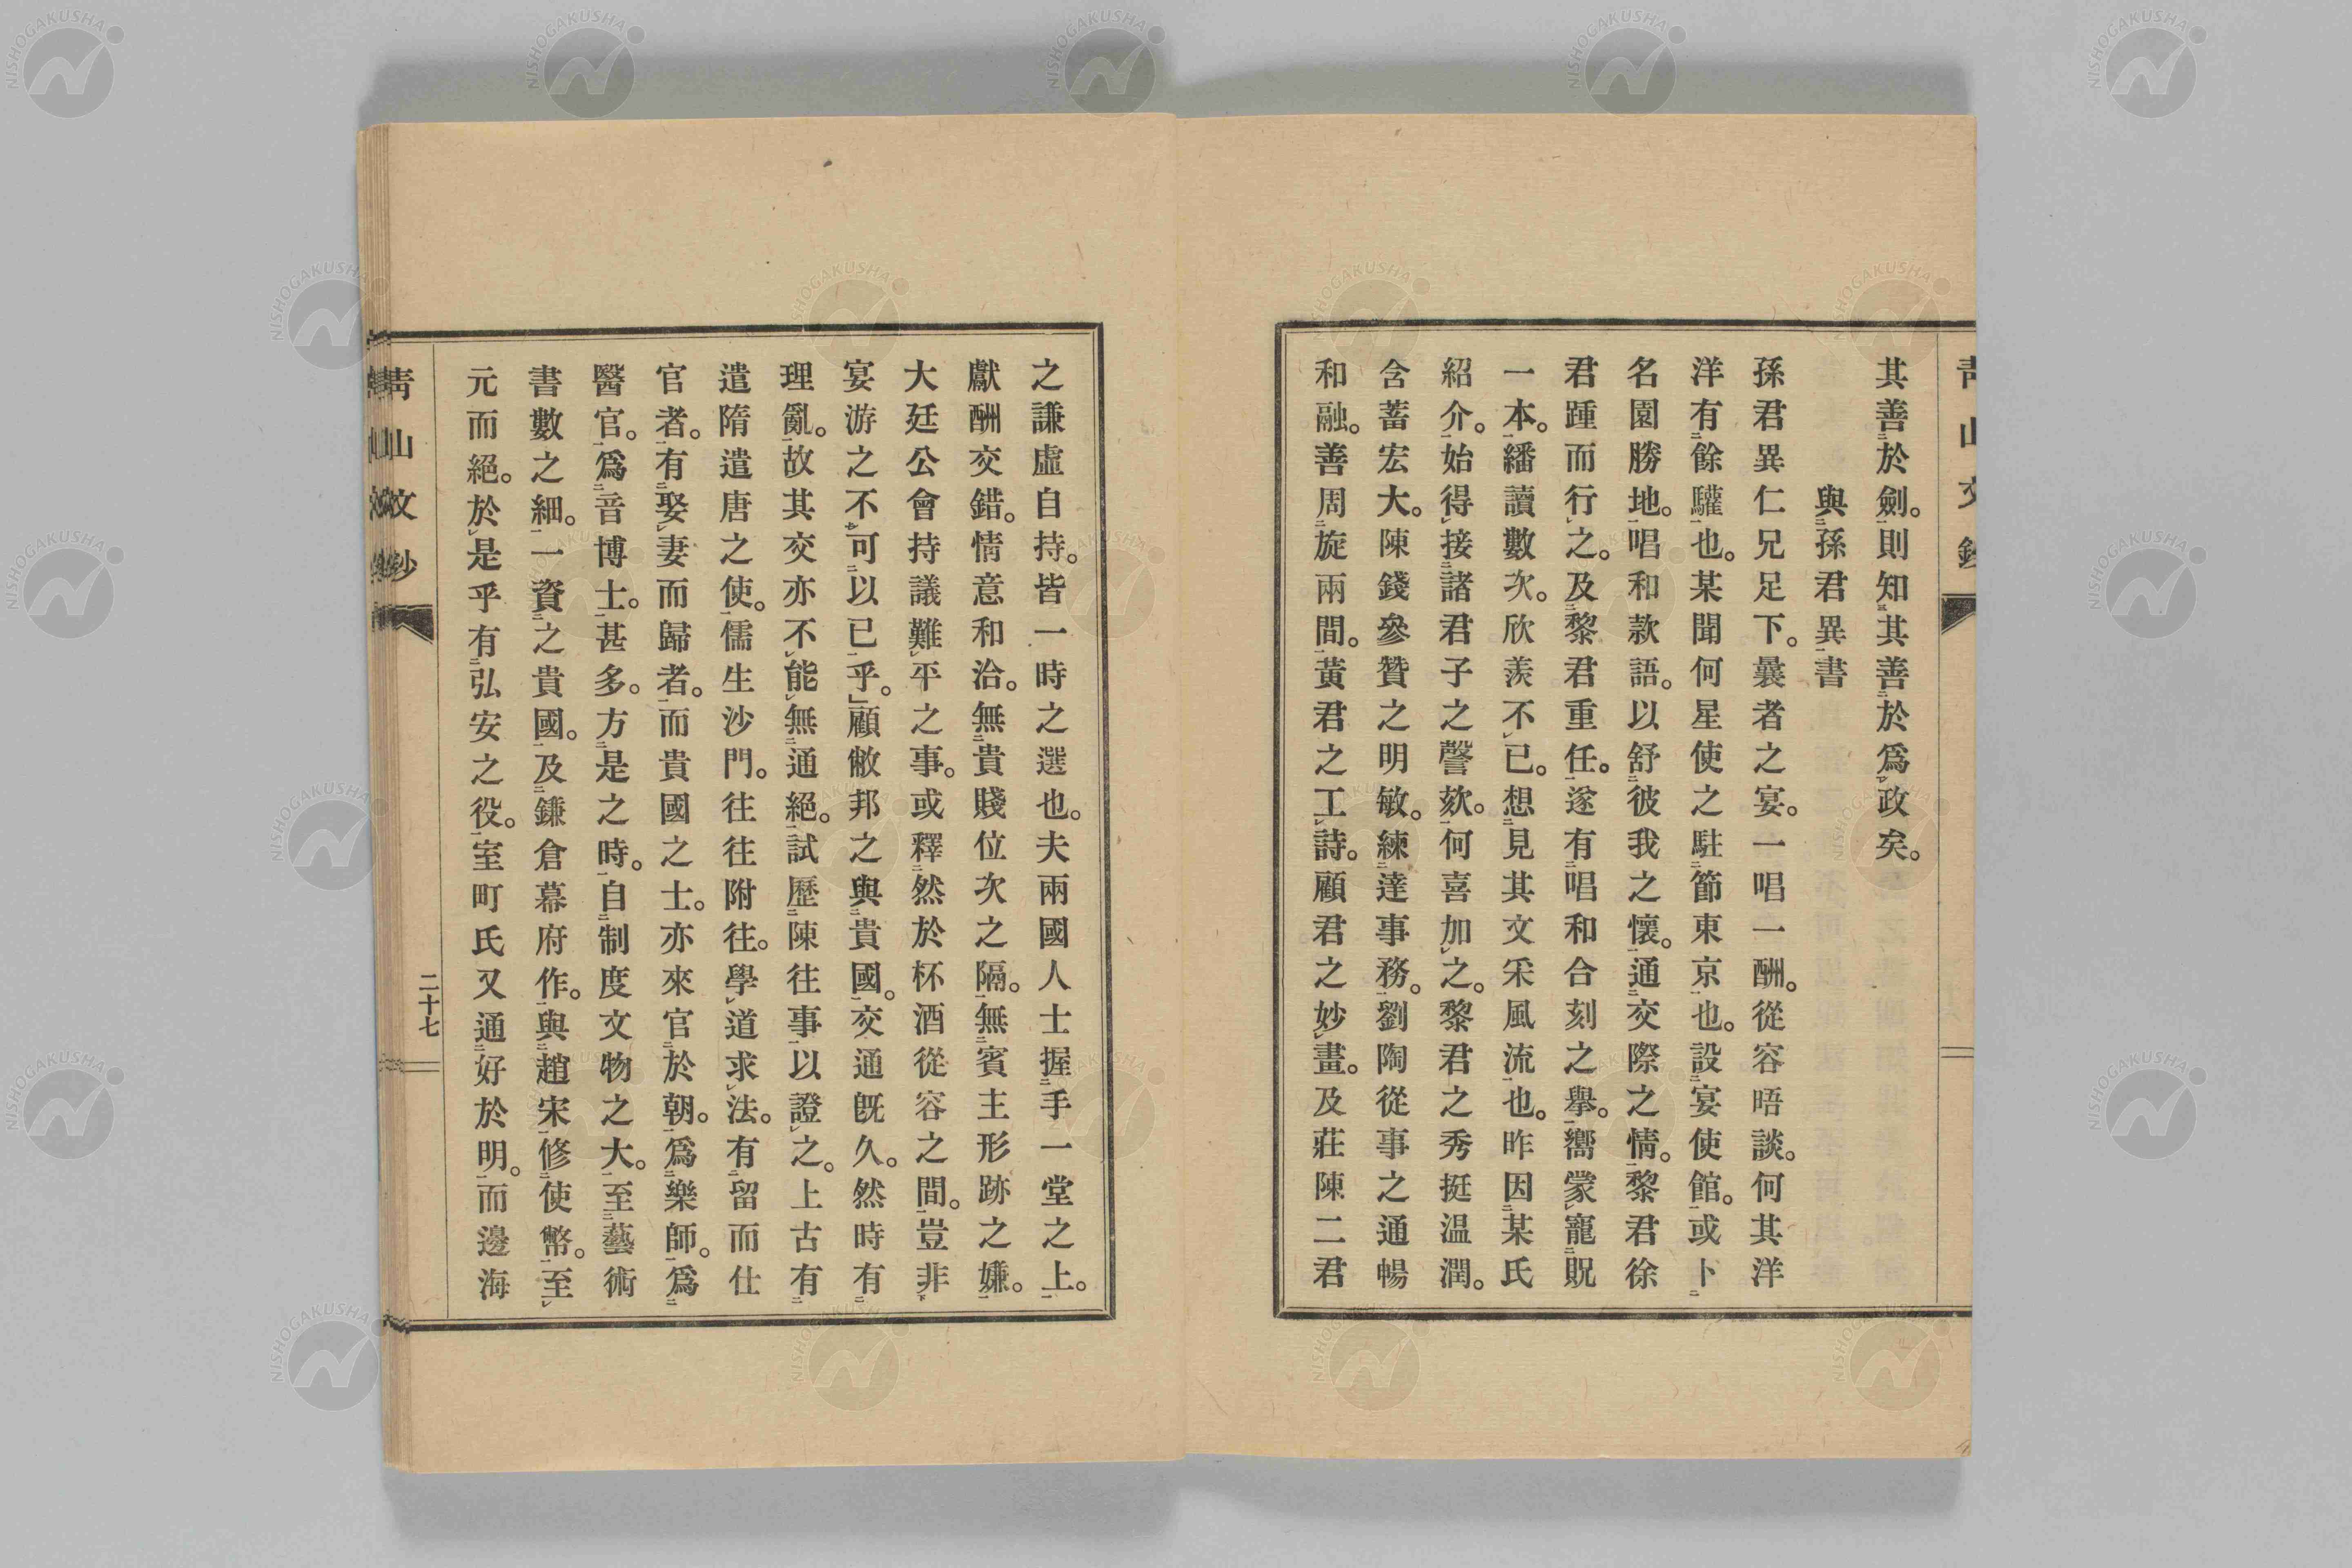 青山文鈔
其善於劍。則知其善於爲政矣。
與孫君異書
孫君異仁兄足下。曩者之宴。一唱一酬。從容晤談。何其洋
洋有餘驩也。某聞何星使之駐節東京也。設宴使館。或卜
名園勝地。唱和款語。以舒彼我之懷。通交際之情。黎君徐
君踵而行之。及黎君重任。遂有唱和合刻之擧。嚮蒙寵貺
一本。繙讀數次。欣羨不已。想見其文采風流也。昨因某氏
紹介。始得接諸君子之謦欬。何喜加之。黎君之秀挺温潤。
含蓄宏大。陳錢參贊之明敏。練達事務。劉陶從事之通暢
和融。善周旋兩間。黃君之工詩。顧君之妙畫。及莊陳二君
之謙虛自持。皆一時之選也。夫兩國人士握手一堂之上。
獻酬交錯。情意和洽。無貴賤位次之隔。無賓主形跡之嫌。
大廷公會持議難平之事。或釋然於杯酒從容之間。豈非
宴游之不可以已乎。顧敝邦之與貴國。交通既久。然時有
理亂。故其交亦不能無通絕。試歷陳往事以證之。上古有
遣隋遣唐之使。儒生沙門。往往附往。學道求法。有留而仕
官者。有娶妻而歸者。而貴國之士。亦來官於朝。爲樂師。爲
醫官。爲音博士。甚多。方是之時。自制度文物之大。至藝術
書數之細。一資之貴國。及鎌倉幕府作。與趙宋修使幣。至
元而絕。於是乎有弘安之役。室町氏又通好於明。而邊海
青山文鈔
二十七